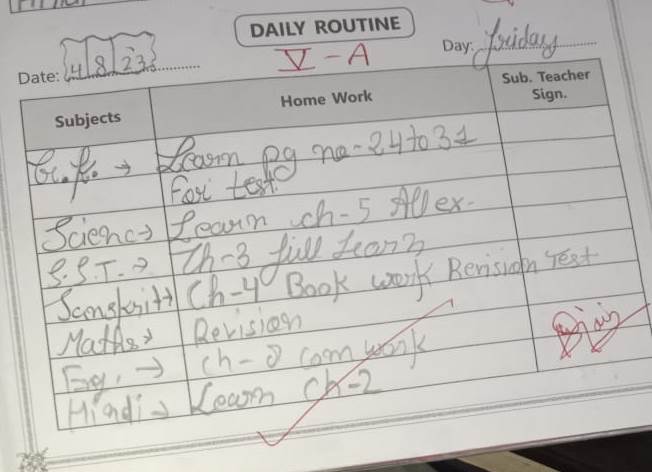 DAILY ROUTINE
V - A
Date: 4 8 23
Day: friday
Subjects Home Work Sub. Teacher Sign.
G.K. → Learn pg no-24 to 31
For test
Scienc → Learn ch-5 All ex.
S.S.T. → Ch-3 full learn
Sanskrit → Ch-4 Book work Revision Test
Maths → Revision
Eg. → ch-8 com work
Hindi → Learn Ch-2